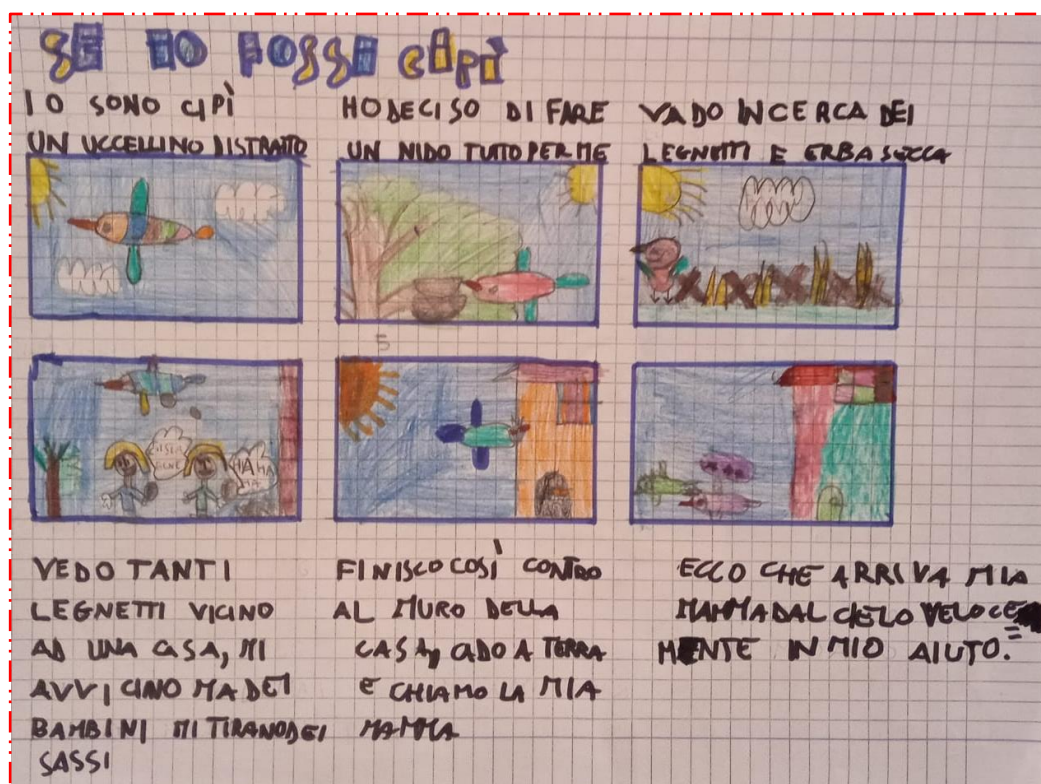 SE IO FOSSI CIPÌ
IO SONO CIPÌ
UN UCCELLINO DISTRATTO
HO DECISO DI FARE
UN NIDO TUTTO PER ME
VADO IN CERCA DEI
LEGNETTI E ERBA SECCA
5
HA
HA
HA
VEDO TANTI
LEGNETTI VICINO
AD UNA CASA, MI
AVVICINO MA DEI
BAMBINI MI TIRANO DEI
SASSI
FINISCO COSÌ CONTRO
AL MURO DELLA
CASA, CADO A TERRA
E CHIAMO LA MIA
MAMMA
ECCO CHE ARRIVA MIA
MAMMA DAL CIELO VELOCE=
MENTE IN MIO AIUTO.